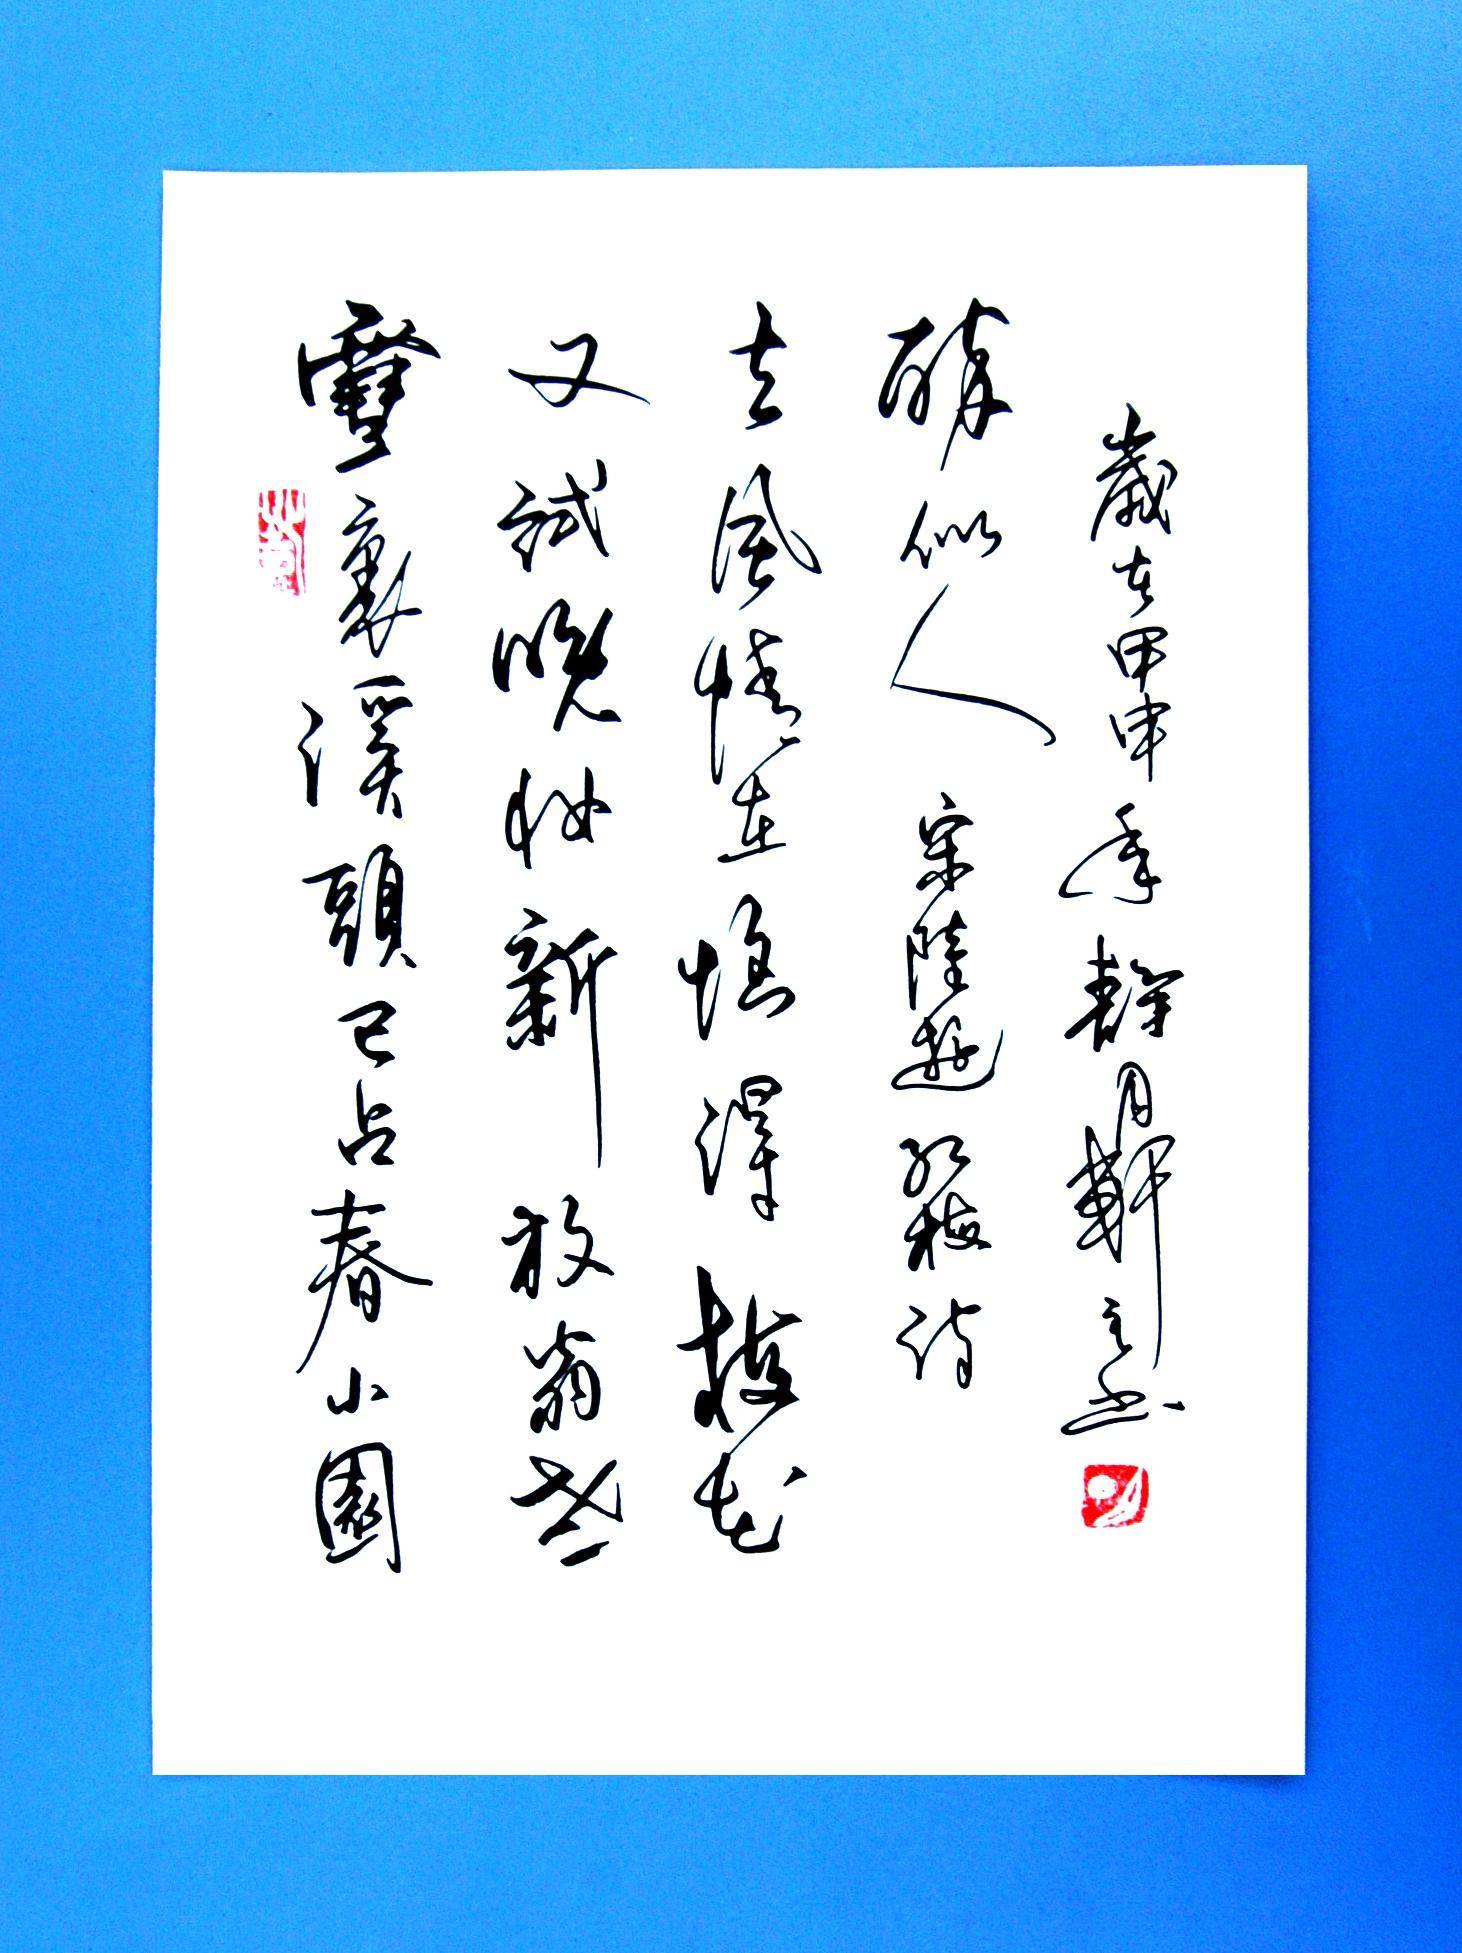 雪裏溪頭已占春小園
又試晚粧新放翁老
去風情在惱得梅花
醉似人 宋陸遊紅梅詩
歲在甲申年靜月軒主書